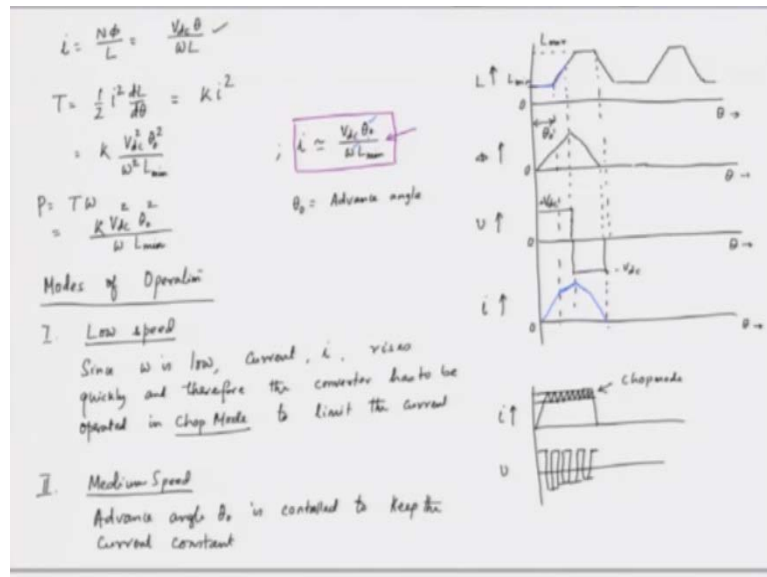 i = Nφ/L = V_dc θ/ωL ✓
T = 1/2 i² dL/dθ = K i²
= K V_dc² θ₀²/ω² L_min² ; i ≃ V_dc θ₀/ω L_min
θ₀ = Advance angle
P = Tω
= K V_dc² θ₀²/ω L_min²
Modes of Operation
I. Low speed
Since ω is low, current, i, rises
quickly and therefore the converter has to be
operated in Chop Mode to limit the current
II. Medium Speed
Advance angle θ₀ is controlled to keep the
current constant
L_max
L↑ L_min
0
θ →
θ₀
φ ↑
0
θ →
V_dc
υ ↑
0
θ →
- V_dc
i ↑
0
θ →
Chopmode
i↑
υ